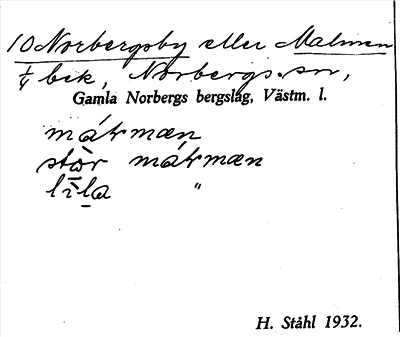 10 Norbergsby eller Malmen
¼ bek, Norbergs sn,
Gamla Norbergs bergslag, Västm. l.
mákmæn
stòr mákmæn
lìla "
H. Ståhl 1932.